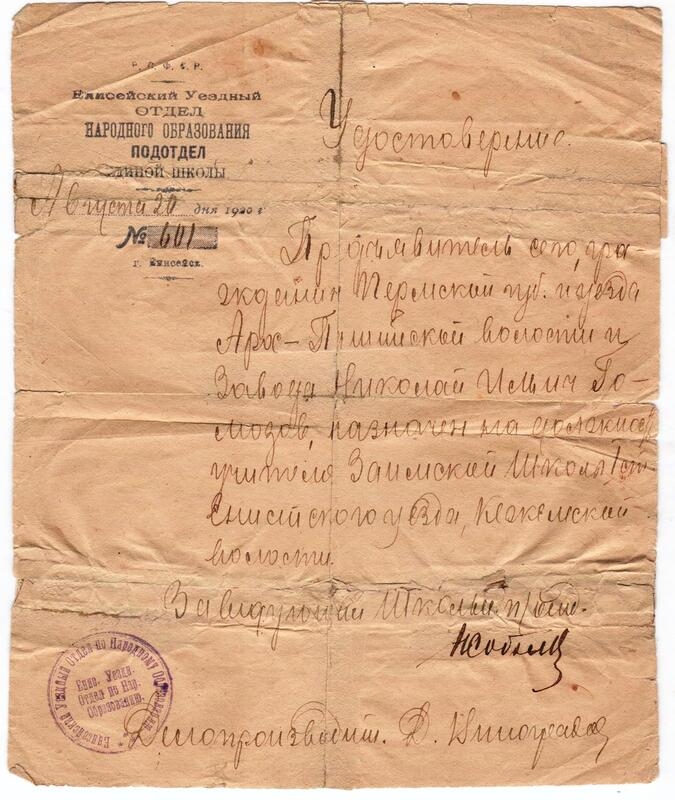 Р. С. Ф. С. Р.
Енисейский Уездный
ОТДЕЛ
НАРОДНОГО ОБРАЗОВАНИЯ
ПОДОТДЕЛ
ЕДИНОЙ ШКОЛЫ
Августа 20 дня 1920 г
№ 601
г. Енисейск.
Удостоверение.
Предъявитель сего, гра-
жданин Пермской губ. и уезда
Арх-Пашийской волости и
Завода Николай Ильич Го-
мозов, назначен на должность
учителя Заимской Школы 1 ст
Енисейского уезда, Кежемской
волости.
Заведующий Школьн. подот.
Делопроизводит. Д. Виноградов
Енисейский Уездный Отдел по Народному Образованию
Енис. Уездн.
Отдел по Нар.
Образованию.